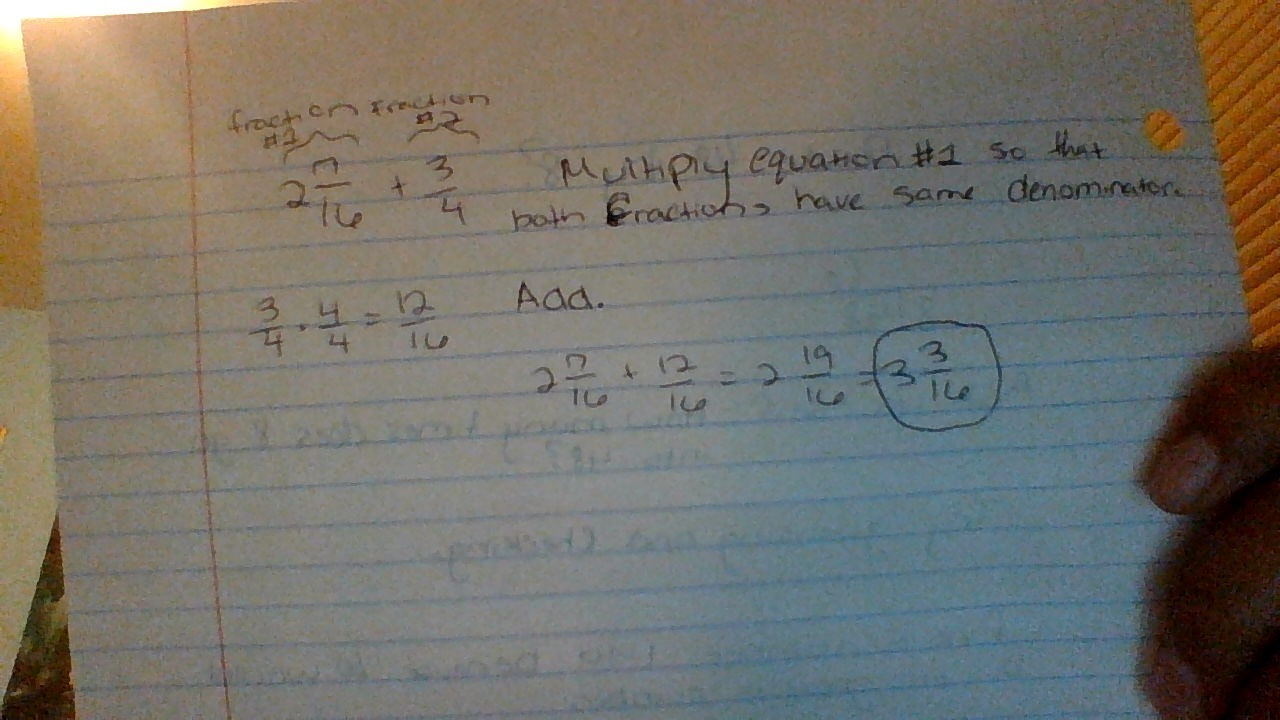 fraction fraction
#1 #2
2 7/16 + 3/4 Multiply equation #1 so that
both fractions have same denominator.
3/4 · 4/4 = 12/16 Add.
2 7/16 + 12/16 = 2 19/16 = 3 3/16